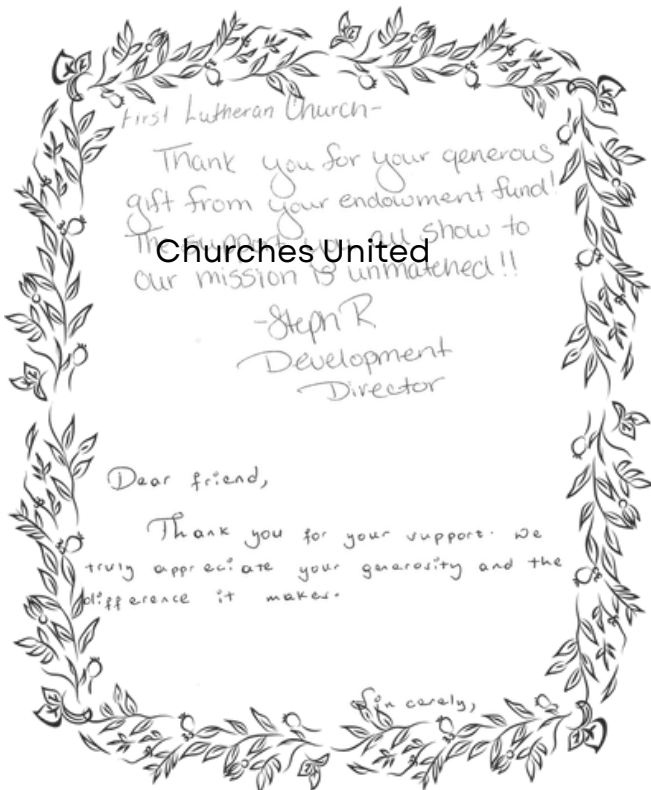 First Lutheran Church-
Thank you for your generous
gift from your endowment fund!
The support you all show to
Churches United
our mission is unmatched!!
-Steph R
Development
Director
Dear friend,
Thank you for your support. We
truly appreciate your generosity and the
difference it makes.
Sincerely,